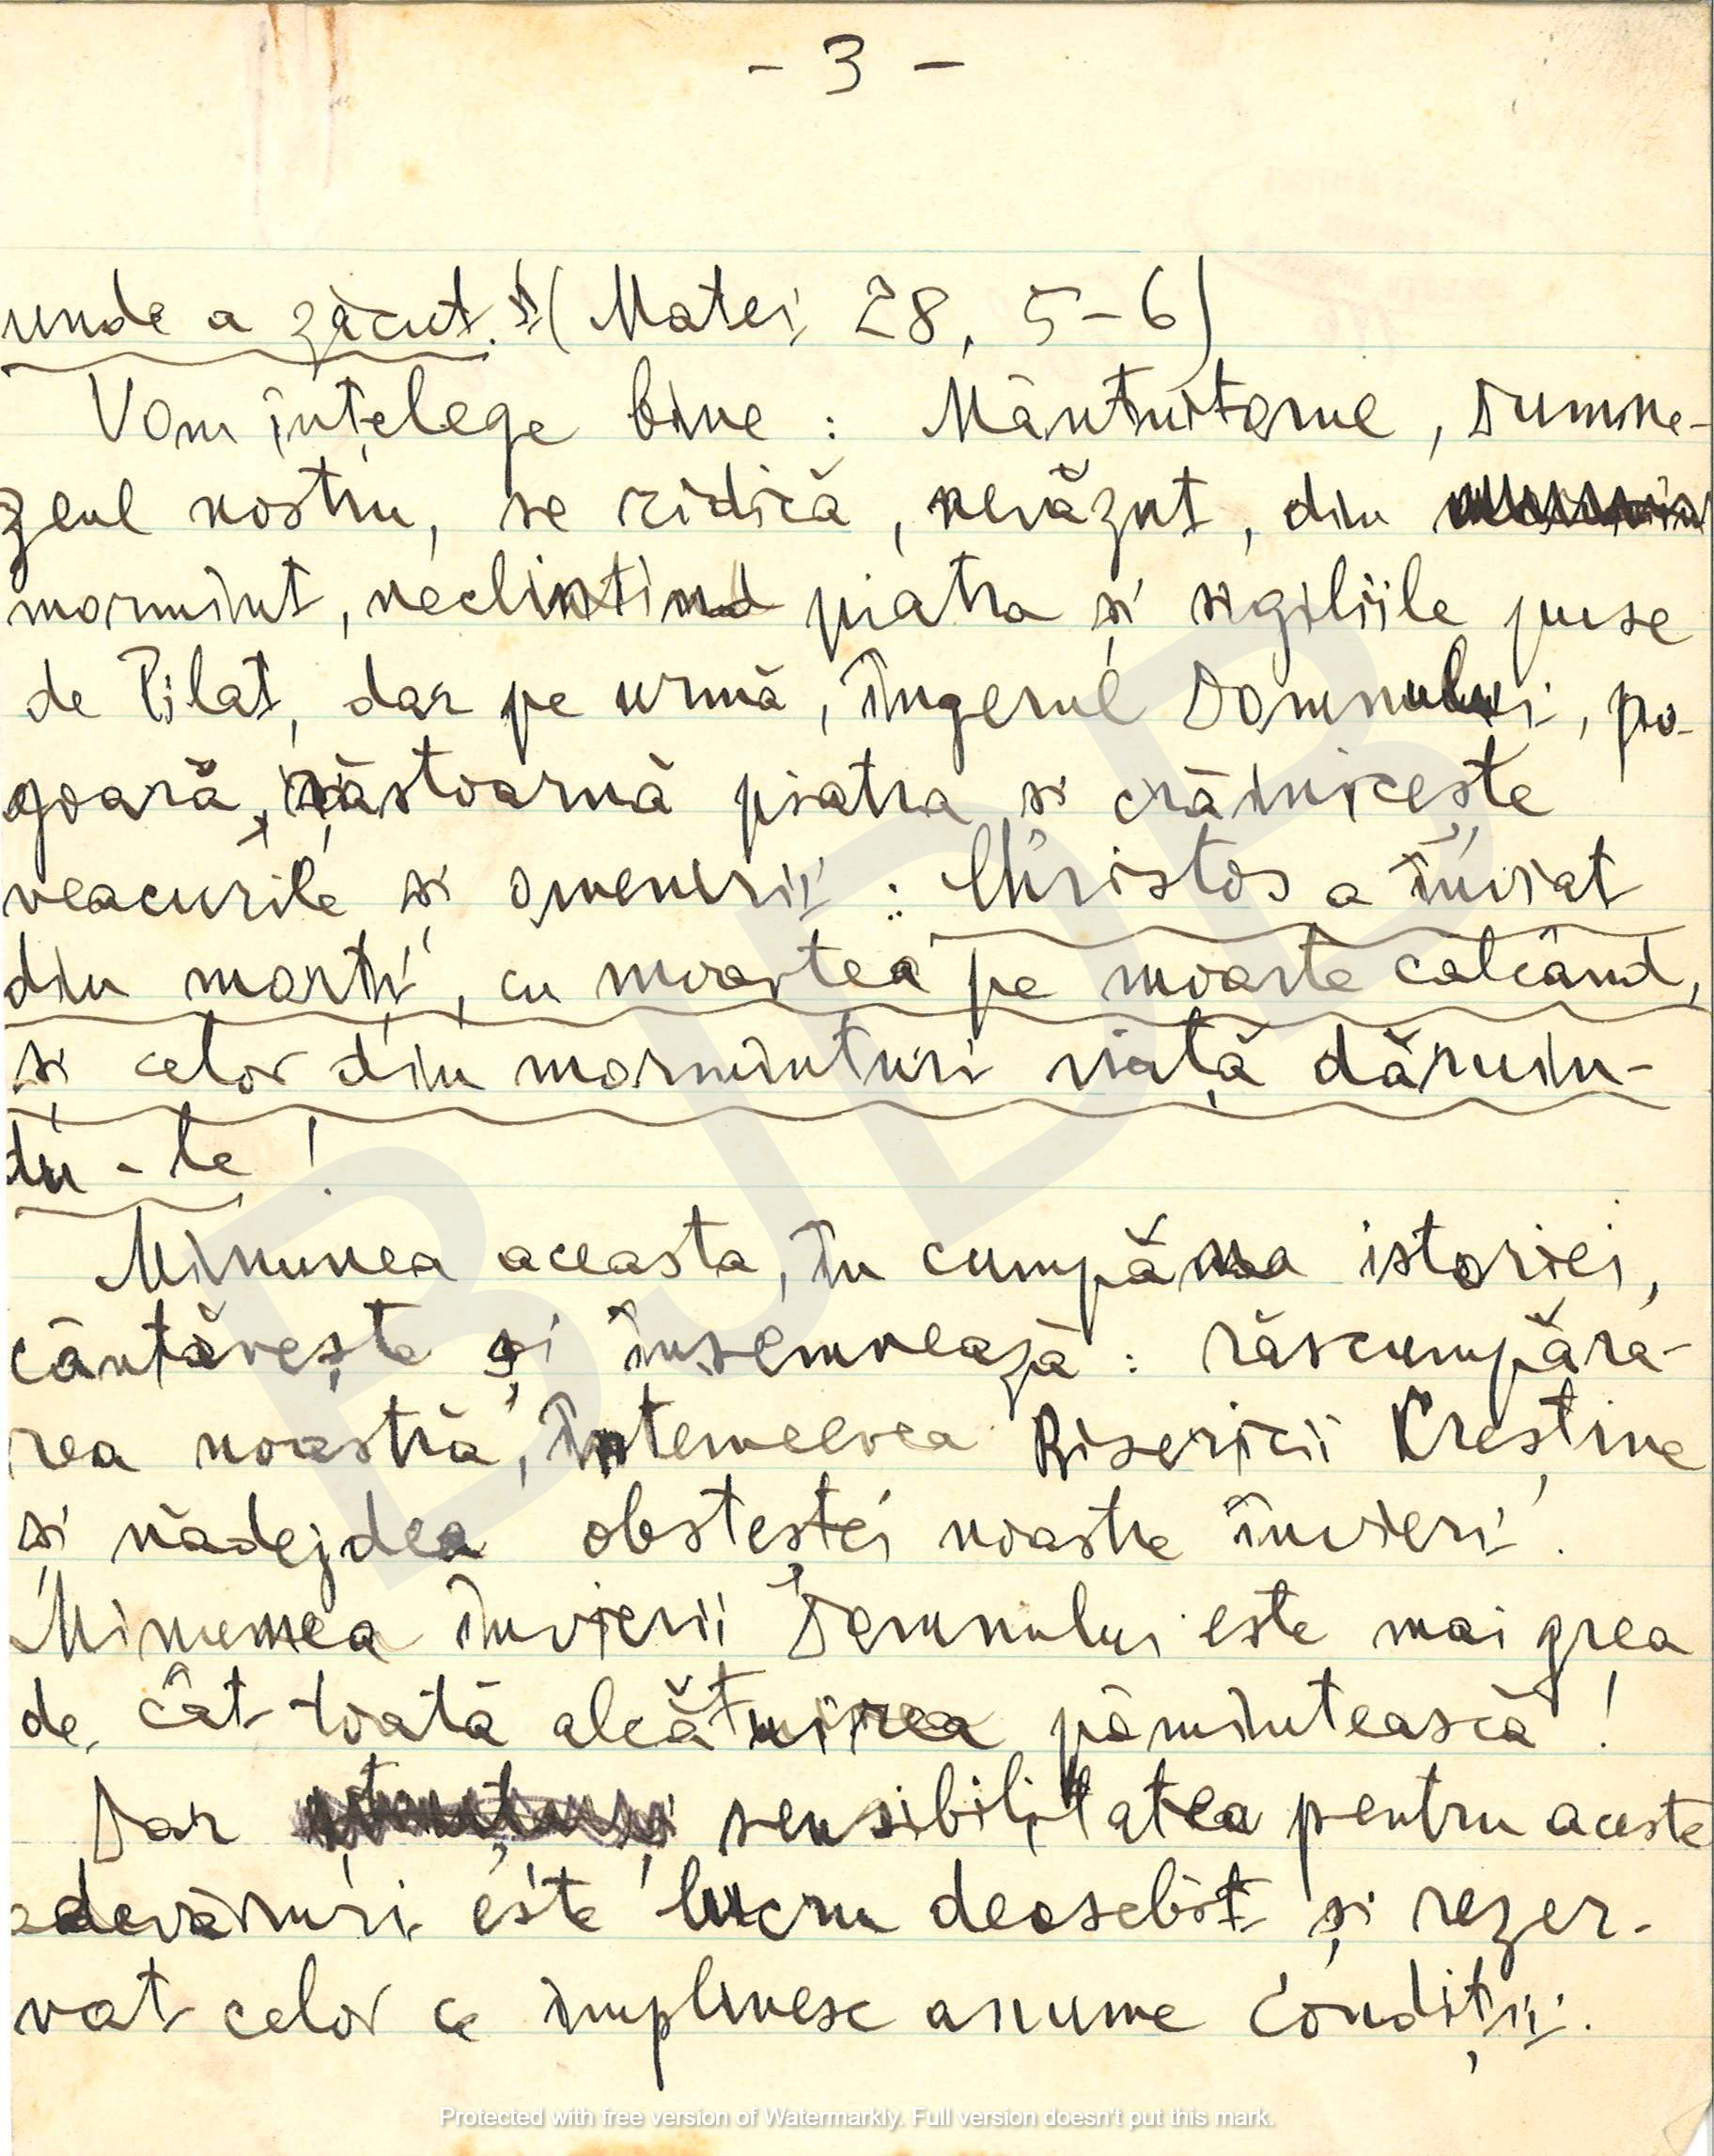 - 3 -
unde a zăcut." (Matei 28, 5-6)
Vom înțelege bine : Mântuitorul, Dumne-
zeul nostru, se ridică, nevăzut, din
mormînt, neclintind piatra și sigiliile puse
de Pilat, dar pe urmă, îngerul Domnului, po-
goară, răstoarnă piatra și crăinicește
veacurile și omenirii : Christos a înviat
din morți, cu moartea pe moarte călcând,
și celor din morminturi viață dăruin-
du-le !
Minunea aceasta, în cumpăna istoriei,
cântărește și însemnează : răscumpăra-
rea noastră, întemeerea Bisericii Creștine
și nădejdea obșteștei noastre învieri.
Minunea Învierii Domnului este mai grea
de cât toată alcătuirea pămîntească !
Dar sensibilitatea pentru aceste
adevăruri este lucru deosebit și rezer-
vat celor ce împlinesc anume condiții.
BJDB
Protected with free version of Watermarkly. Full version doesn't put this mark.